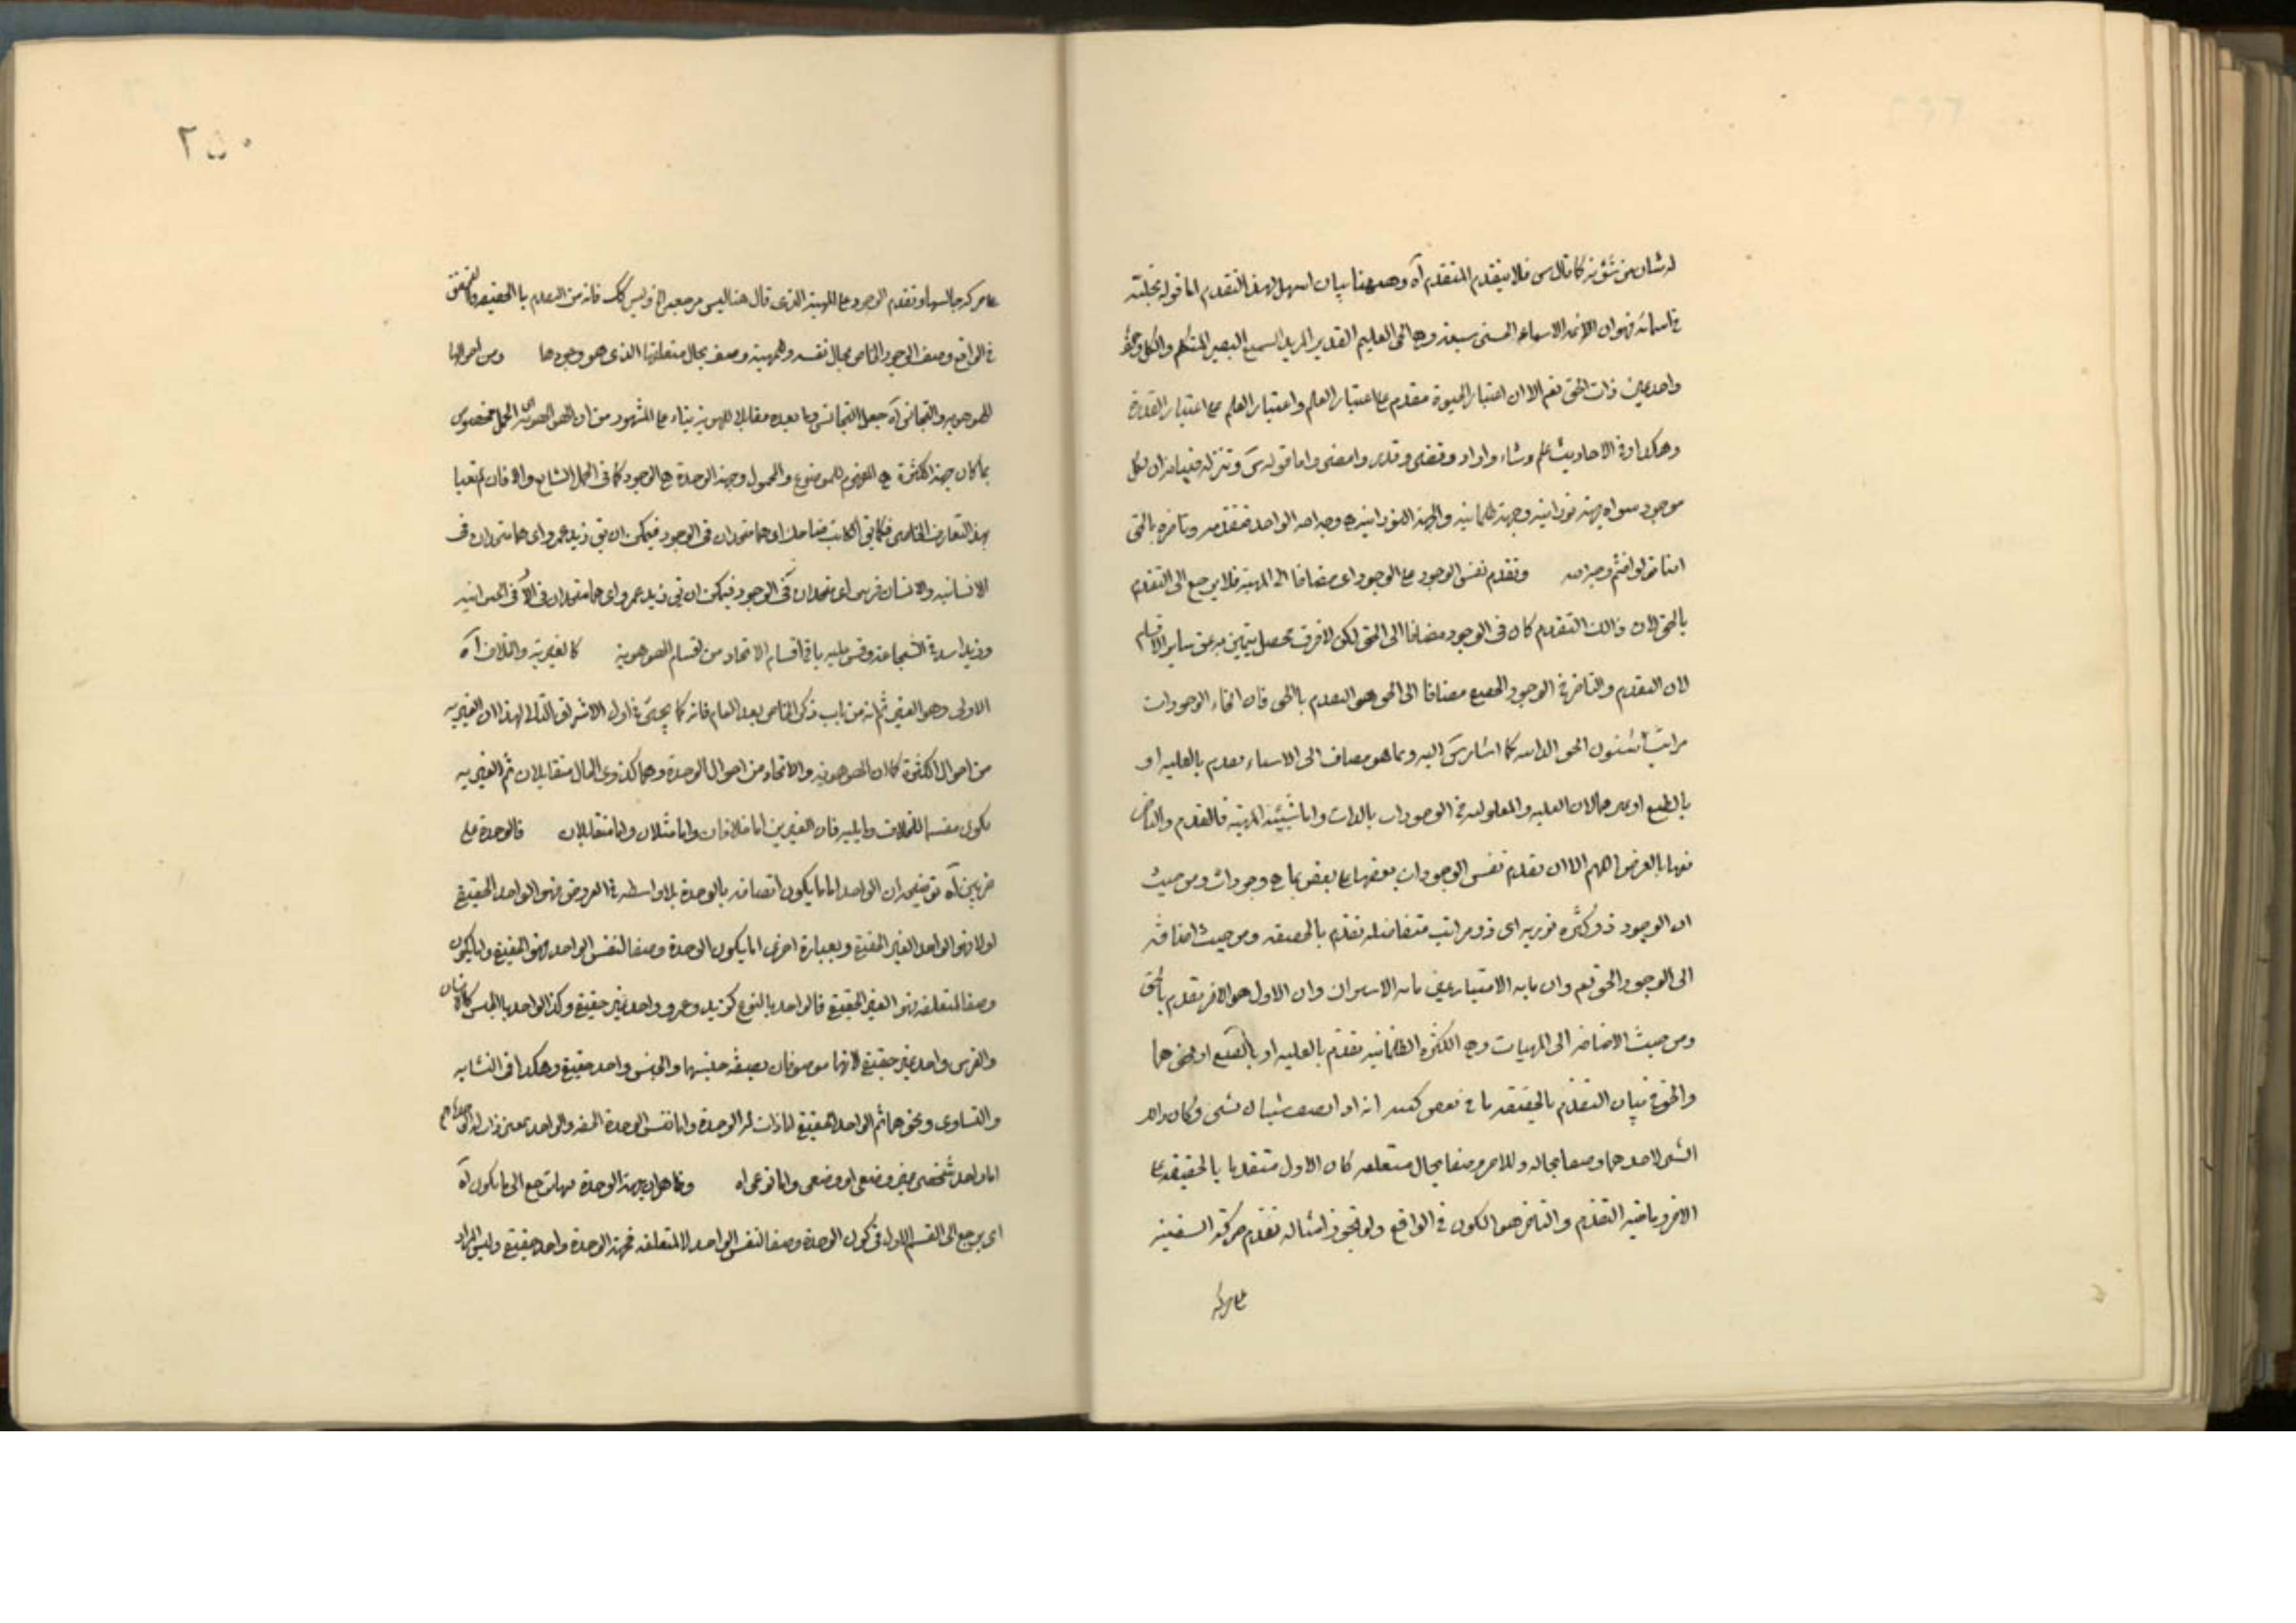 له شان من شؤنه كما قال س فلا يتقدم المتقدم آه وهيهنا بيان اسهل لهذا التقدم اما قوله تجلية
في اسمائه فهو ان الائمة الاسماء الحسنى سبعة وهي الحي العليم القدير المريد السميع البصير المتكلم والكل
واحد عين ذات الحق نعم الا ان اعتبار الحيوة مقدم على اعتبار العلم واعتبار العلم على اعتبار القدرة
وهكذا وفي الاحاديث علم وشاء واراد وقضى وقدر وامضى واما قوله س وتنزله فبيانه ان لكل
موجود سواه جهة نورانية وجهة ظلمانية والجهة النورانية وجه الله الواحد فتقدمه وتاخره بالحق
اينما تولوا فثم وجه الله وتقدم نفس الوجود على الوجود اي مضافا الى المهية فلا يرجع الى التقدم
بالحق لان ذلك التقدم كان في الوجود مضافا الى الحق لكن لا فرق محصل يتميز به عن ساير الاقسام
لان التقدم والتاخر في الوجود الحقيقي مضافا الى الحق هو التقدم بالحق فان انحاء الوجودات
مراتب شئون الحق الذاتيه كما اشار س اليه وبما هو مضاف الى الاشياء تقدم بالعليه او
بالطبع او غيرهما لان العليه والمعلوليه في الوجودات بالذات واما شيئية المهية فالتقدم والتاخر
فيها بالعرض اللهم الا ان تقدم نفس الوجودات بعضها على بعض بما هي وجودات ومن حيث
ان الوجود ذو كثرة نوريه اي ذو مراتب متفاضله تقدم بالحقيقه ومن حيث اضافته
الى الوجود الحق تعم وان ما به الامتياز عين ما به الاشتراك وان الاول هو الاخر تقدم بالحق
ومن حيث الاضافه الى المهيات وهي الكثرة الظلمانيه تقدم بالعليه او بالطبع او نحوهما
والحق في بيان التقدم بالحقيقه ما في بعض كتبه انه اذا اتصف شيئان بشئ وكان ذلك
الشئ لاحدهما وصفا بحاله وللاخر وصفا بحال متعلقه كان الاول متقدما بالحقيقه على
الاخر وما فيه التقدم والتاخر هو الكون في الواقع ولو تجوزا مثاله تقدم حركة السفينة
على حركة
٢٥٠
على حركة جالسها وتقدم الوجود على المهية الذي قال هنا ليس مرجعه الخ وليس كك فانه من التقدم بالحقيقه
في الواقع وصف الوجود الخاص بحال نفسه وللمهية وصف بحال متعلقها الذي هو وجودها ومن احوالها
الهوهويه والتجانس آه جعل التجانس وما بعده مقابلا للهوية بناء على المشهور من ان الهوهويه اي الحمل مخصوص
بما كان جهة الكثرة هي المفهوم للموضوع والمحمول وجهة الوحدة هي الوجود كما في الحمل الشايع والا فان لم نعبا
بهذا التعارف الخاص فكما يق الكاتب ضاحك اي هما متحدان في الوجود فيمكن ان يق زيد عمرو اي هما متحدان في
الانسانيه والانسان فرس اي متحدان في الحيوانيه
وزيد اسد في الشجاعة وقس عليه باقي اقسام الاتحاد من اقسام الهوهوية كالغيرية والخلاف آه
الاولى وهو الغير ثم انه من باب ذكر الخاص بعد العام فانه كما يجئ في اول الاشراق التالي لهذا ان الغيريه
من احوال الكثرة كما ان الهوهويه والاتحاد من احوال الوحدة وهما كذوي الحال متقابلان ثم الغيريه
يكون مقسما للخلاف وما يليه فان الغيرين اما خلافان واما مثلان واما متقابلان فالوحدة على
ضربين آه توضيحه ان الواحد اما ما يكون اتصافه بالوحدة بلا واسطه في العروض فهو الواحد الحقيقي
او لا فهو الواحد الغير الحقيقي وبعبارة اخرى اما يكون الوحدة وصفا لنفس الواحد فهو الحقيقي واما يكون
وصفا لمتعلقه فهو الغير الحقيقي فالواحد بالنوع كزيد وعمرو واحد غير حقيقي وكذا الواحد بالجنس كالانسان
والفرس واحد غير حقيقي لانهما موصوفان بصفة جنسهما والجنس واحد حقيقي وهكذا في التشابه
والتساوي ونحوهما ثم الواحد الحقيقي اما ذات له الوحدة واما نفس الوحدة الحقه والواحد بمعنى ذات له
اما واحد شخصي غير وضعي او وضعي واما نوعي اه وظاهر ان جهة الوحدة فيها ترجع الى ما يكون آه
اي يرجع الى القسم الاول في كون الوحدة وصفا لنفس الواحد لا لمتعلقه فجهة الوحدة واحد حقيقي وليس المراد